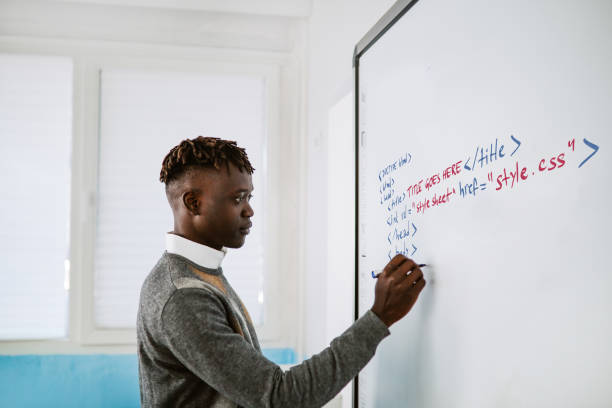 <DOCTYPE html>
<html>
<head>
<title>TITLE GOES HERE</title>
<link id="stylesheet" href="style.css">
</head>
<body>